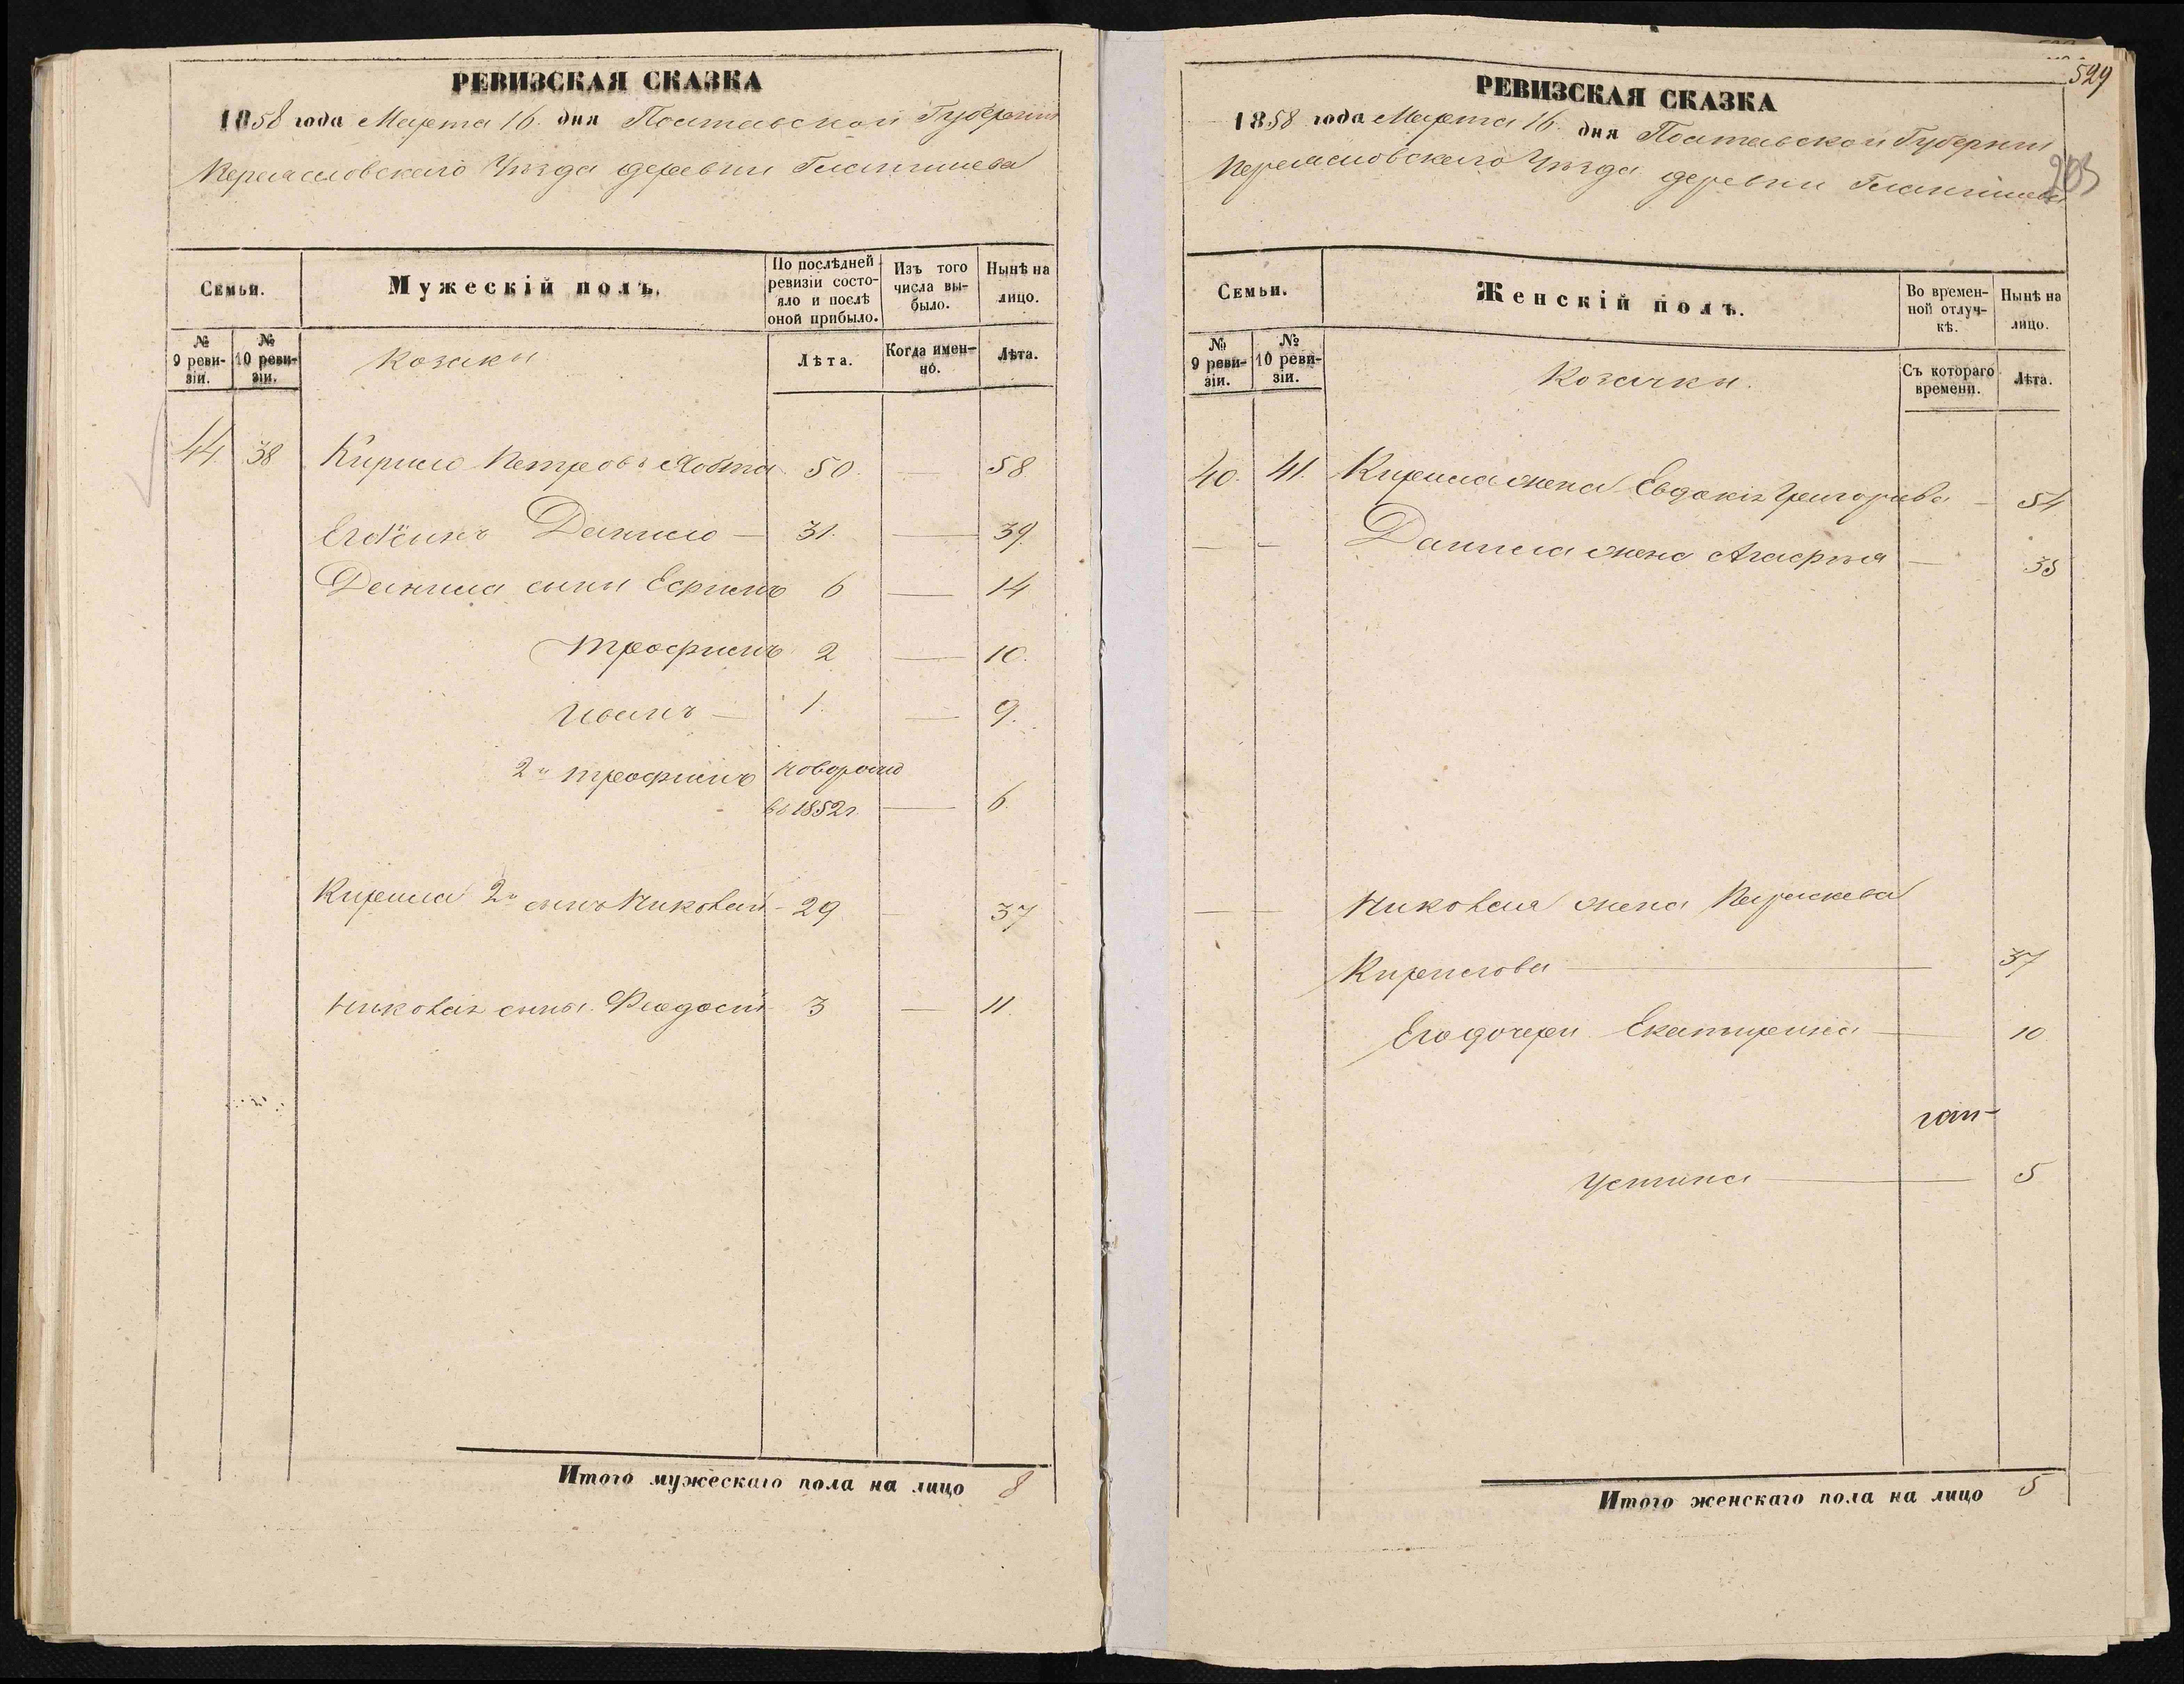 РЕВИЗСКАЯ СКАЗКА
1858 года Марта 16. дня Полтавской Губерніи
Переяславскаго Уѣзда деревни
Семьи.
Мужескій полъ.
По послѣдней ревизіи состояло и послѣ оной прибыло.
Изъ того числа выбыло.
Нынѣ на лицо.
№ 9 ревизіи.
№ 10 ревизіи.
Козаки
Лѣта.
Когда именно.
Лѣта.
44 38 Кирило Петровъ 50. — 58
Сынъ Данило — 31. — 39.
Данила сыны Ефимъ 6 — 14
Трофимъ 2 — 10.
Иванъ — 1. — 9.
2й Трофимъ новорожд
въ 1852г. — 6.
Кирила 2й сынъ Николай - 29 — 37
Николая сыны Феодосій 3 — 11.
Итого мужескаго пола на лицо 8
529
203
РЕВИЗСКАЯ СКАЗКА
1858 года Марта 16. дня Полтавской Губерніи
Переяславскаго Уѣзда деревни
Семьи.
Женскій полъ.
Во временной отлучкѣ.
Нынѣ на лицо.
№ 9 ревизіи.
№ 10 ревизіи.
Козачки.
Съ котораго времени.
Лѣта.
40. 41. Кирила жена Евдокія Григорьева — 54
— — Данила жена Агафія — 38
— — Николая жена Параскева
Кирилова — 37
Его дочери Екатирина — 10
Устина — 5
Итого женскаго пола на лицо 5